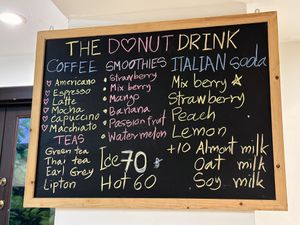 THE DONUT DRINK
COFFEE
Americano
Espresso
Latte
Mocha
Capuccino
Macchiato
TEAS
Green tea
Thai tea
Earl Grey
Lipton
SMOOTHIES
Strawberry
Mix berry
Mango
Banana
Passion fruit
Water melon
Ice 70
Hot 60
ITALIAN Soda
Mix berry
Strawberry
Peach
Lemon
+10 Almont milk
Oat milk
Soy milk